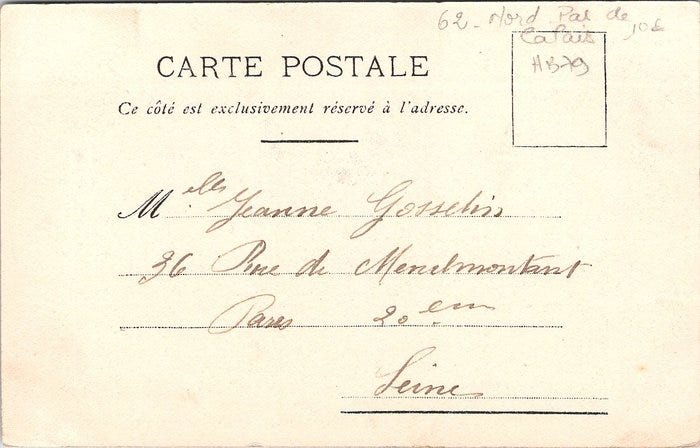 62 - Nord Pas de
Calais 10€
HB79
CARTE POSTALE
Ce côté est exclusivement réservé à l'adresse.
M.elle Jeanne Gosselin
36 Rue de Menilmontant
Paris 20 em
Seine